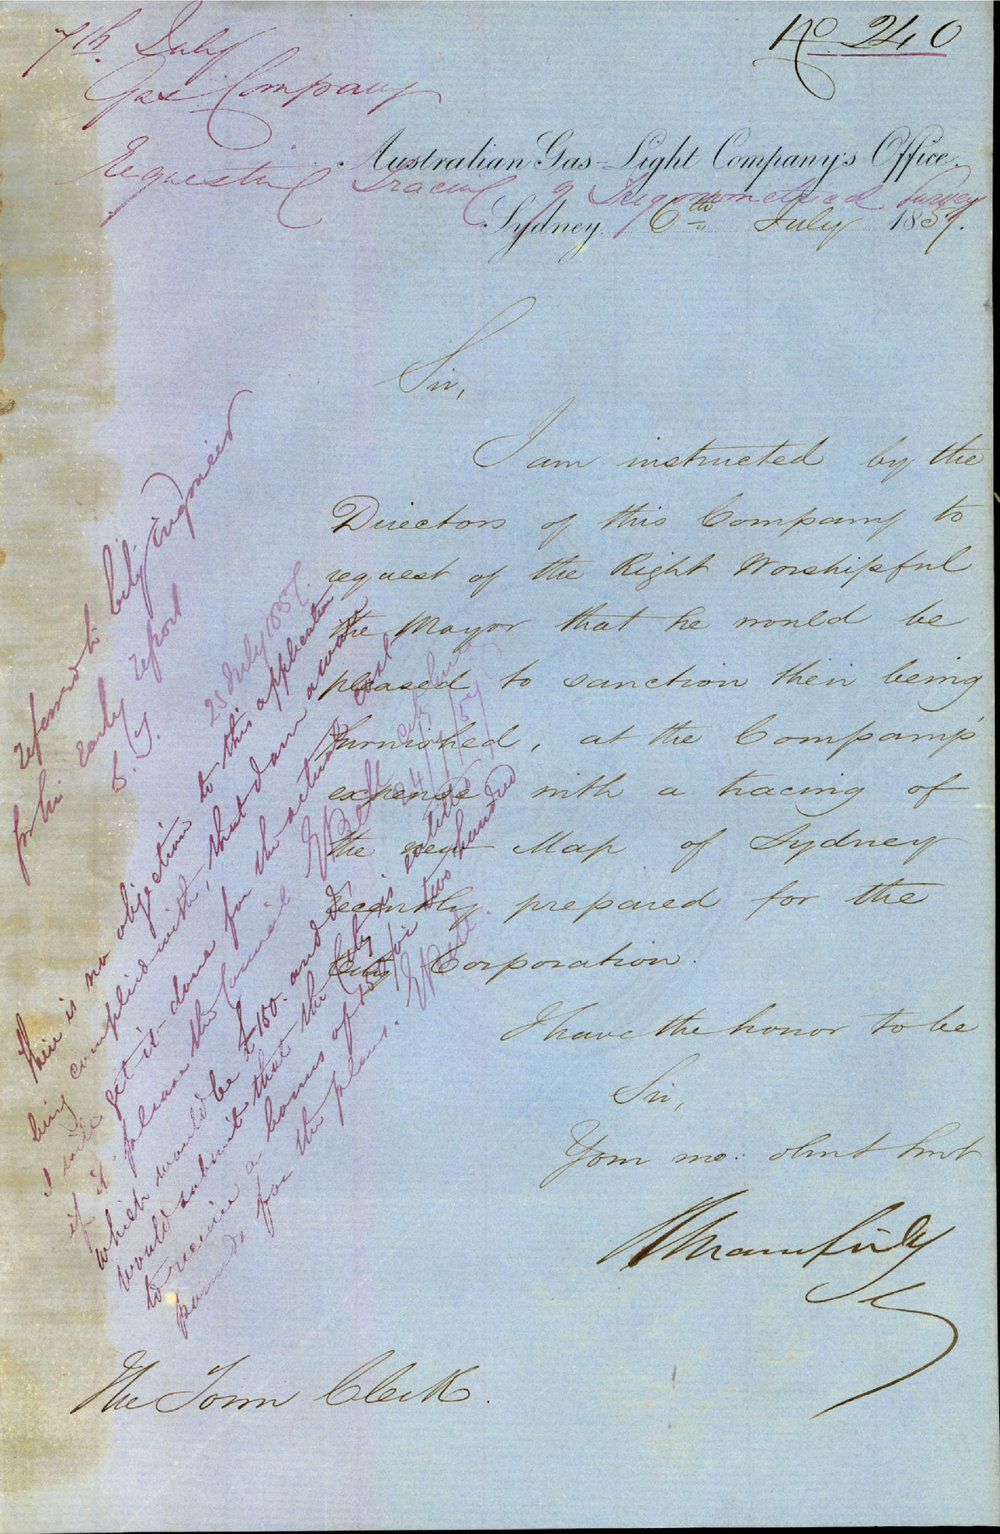 No. 240
7th July
Gas Company
requesting Tracing of Trigonometrical Survey
Australian Gas-Light Company's Office.
Sydney 6th July 1857.
Sir,
I am instructed by the
Directors of this Company to
request of the Right Worshipful
the Mayor that he would be
pleased to sanction their being
furnished, at the Company's
expense with a tracing of
the Map of Sydney
recently prepared for the
City Corporation.
I have the honor to be
Sir,
Your mo: obnt Svnt
The Town Clerk.
referred to City Engineer
for his early report
25 July 1857
There is no objection to this application
being complied with, that I am aware
I will get it done for the actual cost
if it please the Council
which would be £150. and I
would submit that the City is entitled
to receive a bonus of for two hundred
pounds for the plans. EBell
EBell City
24/7/57